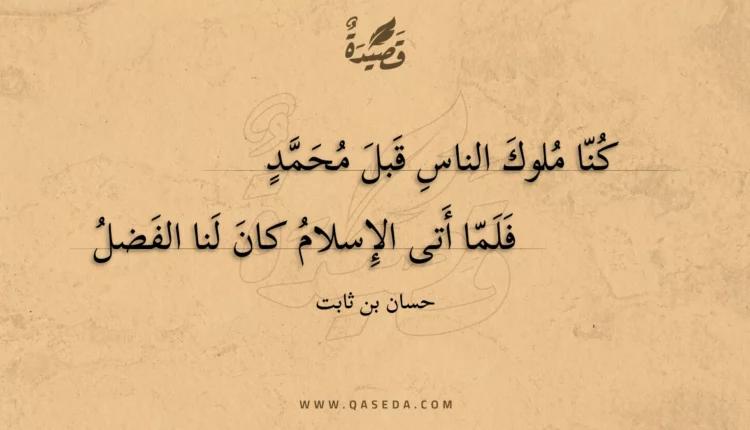 قَصِيدَةٌ
كُنّا مُلوكَ الناسِ قَبلَ مُحَمَّدٍ
فَلَمّا أَتى الإِسلامُ كانَ لَنا الفَضلُ
حسان بن ثابت
WWW.QASEDA.COM